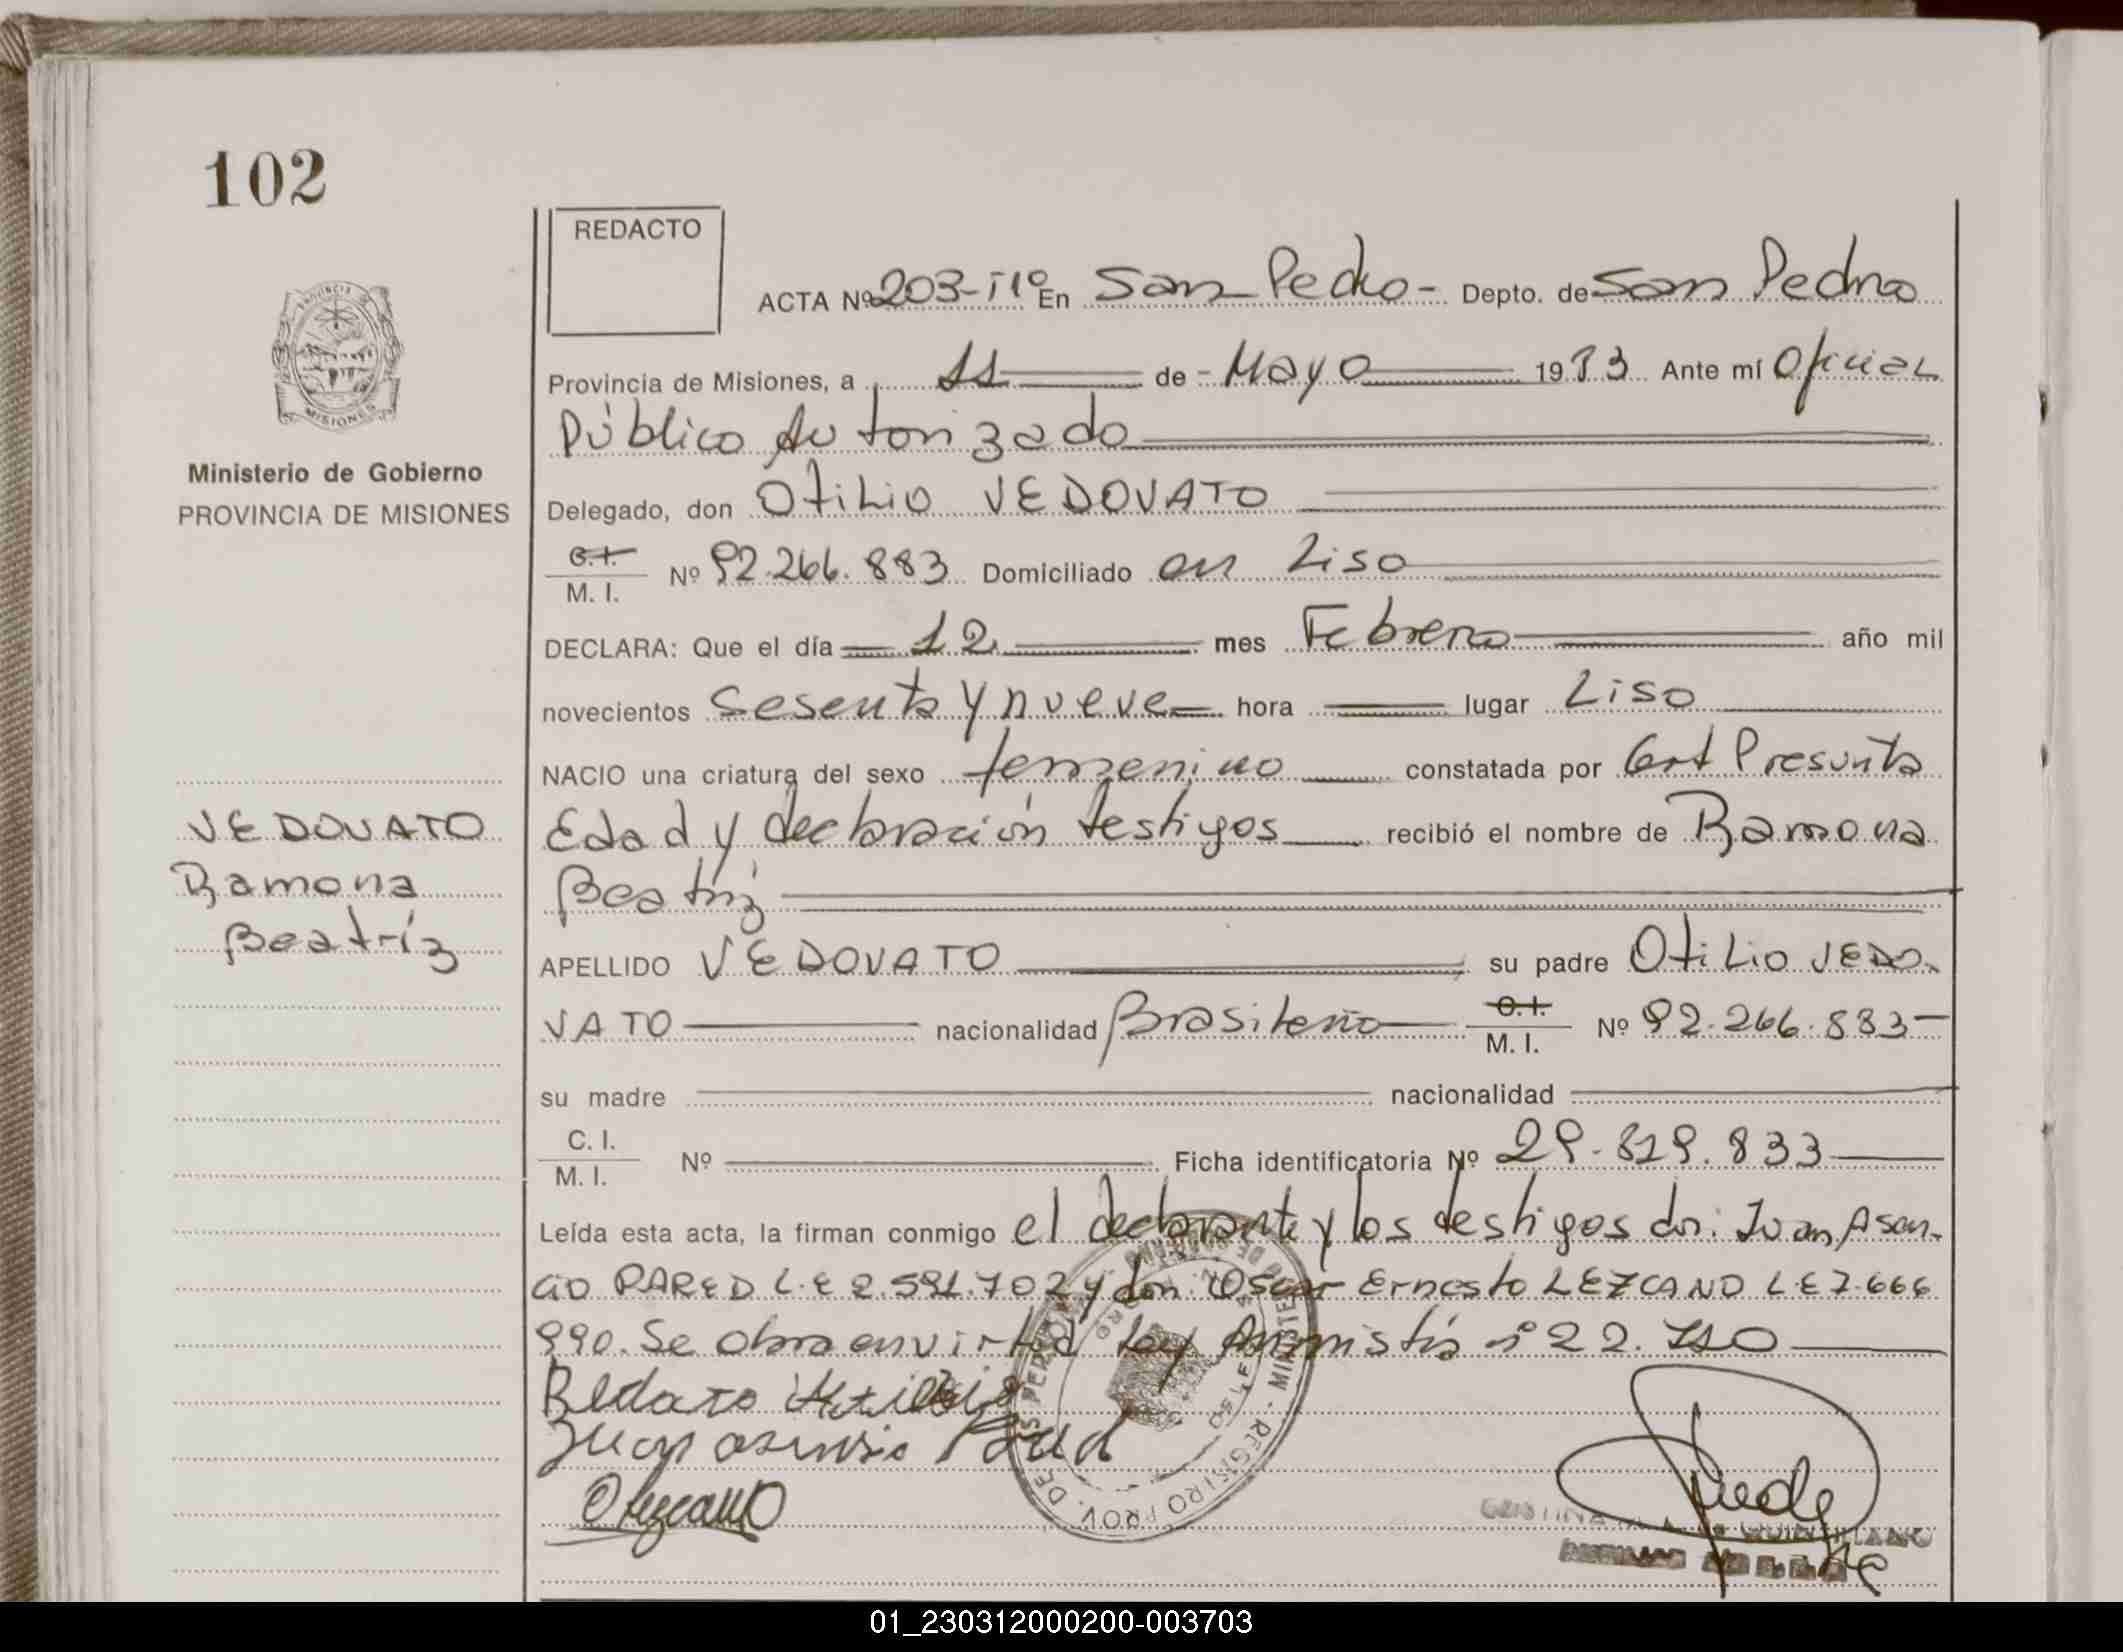 102
REDACTO
ACTA Nº 203-Tº1º En San Pedro - Depto. de San Pedro
Provincia de Misiones, a 11 de - Mayo 1983 Ante mí Oficial
Público Autorizado
Ministerio de Gobierno
PROVINCIA DE MISIONES
Delegado, don Otilio VEDOVATO
C.I. M. I. Nº 92.266.883 Domiciliado en Liso
DECLARA: Que el día 12 mes Febrero año mil
novecientos sesenta y nueve hora lugar Liso
NACIO una criatura del sexo femenino constatada por Cert Presunta
Edad y declaración testigos recibió el nombre de Ramona
Beatríz
VEDOVATO
Ramona
Beatríz
APELLIDO VEDOVATO su padre Otilio VEDO-
VATO nacionalidad Brasileño C.I. M. I. Nº 92.266.883-
su madre nacionalidad
C. I. M. I. Nº Ficha identificatoria Nº 29.829.833
Leída esta acta, la firman conmigo el declarante y los testigos dn. Juan Asen-
cio PARED L.E 2.591.702 y don Oscar Ernesto LEZCANO L.E 7.666
990. Se obra en virtud Ley Amnistía nº 22.
Juan Pared
OLezcano
MISIONES
REGISTRO PROV. DE
01_230312000200-003703